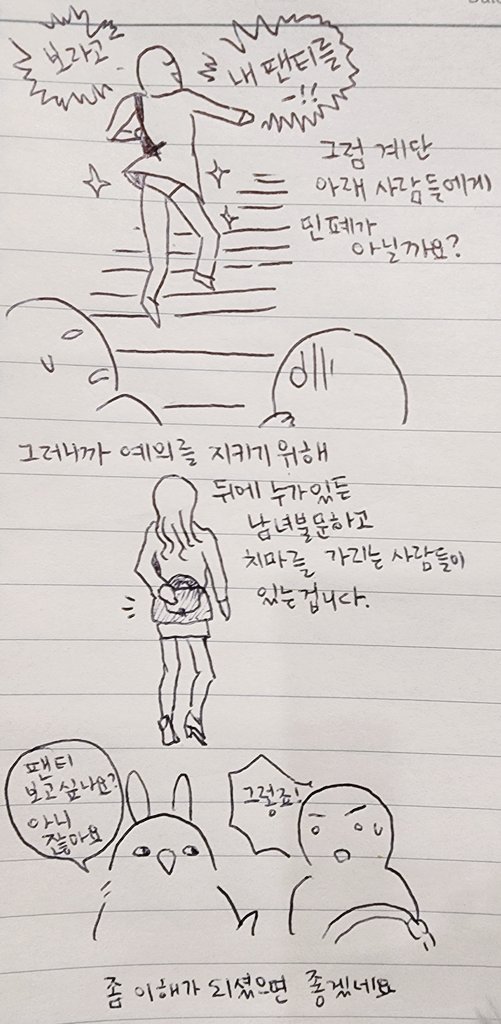 보라고
내 팬티를
-!!
그럼 계단
아래 사람들에게
민폐가
아닐까요?
그러니까 예의를 지키기 위해
뒤에 누가 있든
남녀불문하고
치마를 가리는 사람들이
있는겁니다.
팬티
보고싶나요?
아니
잖아요
그렇죠!
좀 이해가 되셨으면 좋겠네요